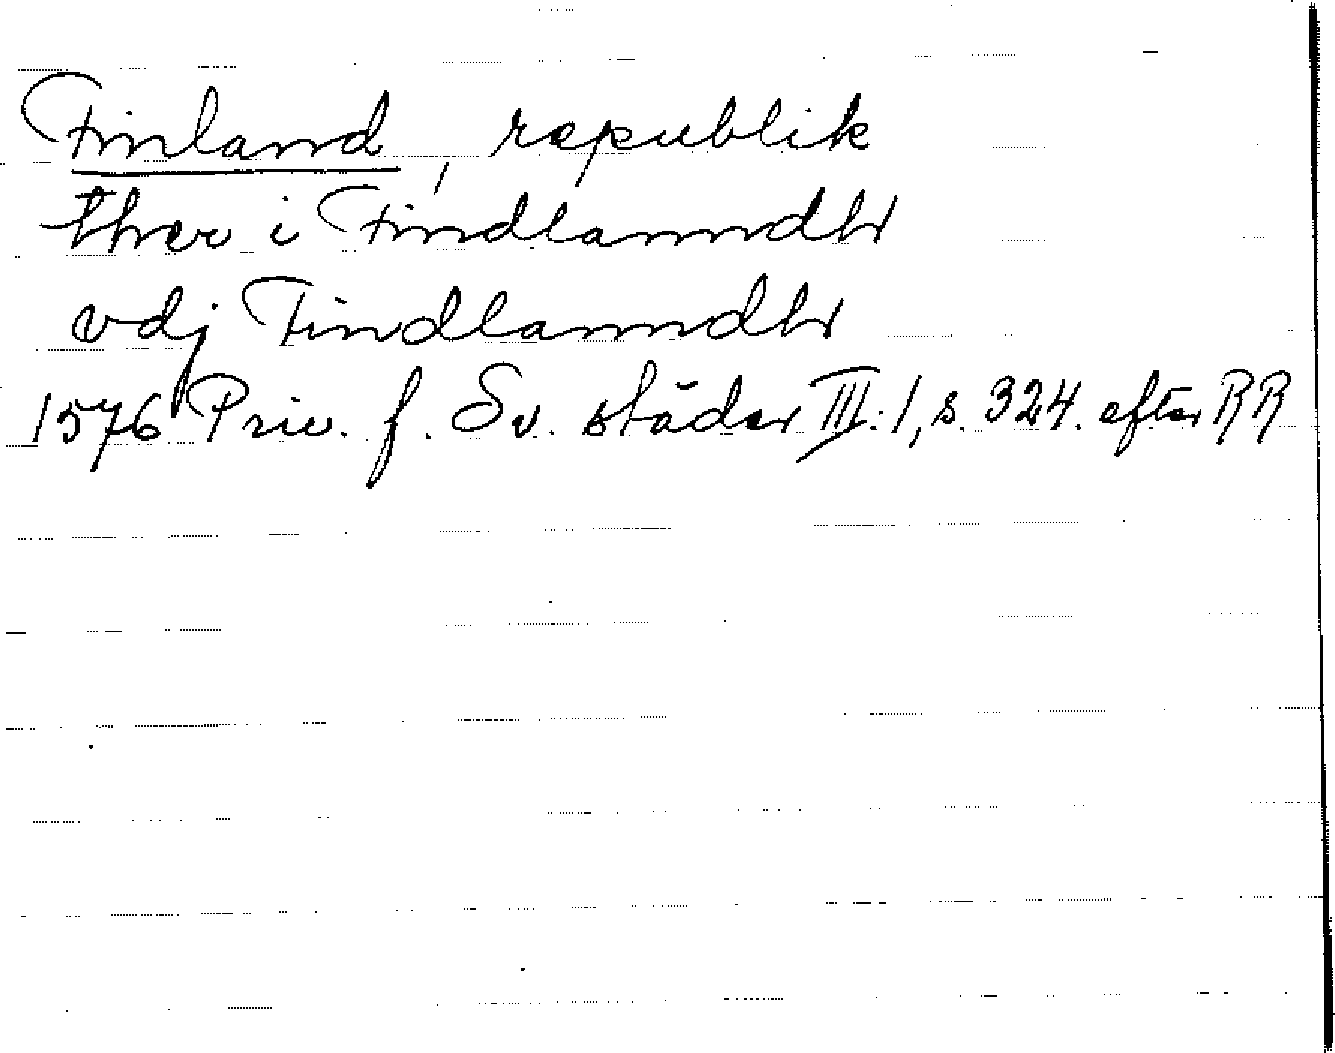 Finland, republik
ther i Findlanndh
vdj Findlanndh
1576 Priv. f. Sv. städer III:1, s. 324. efter RR